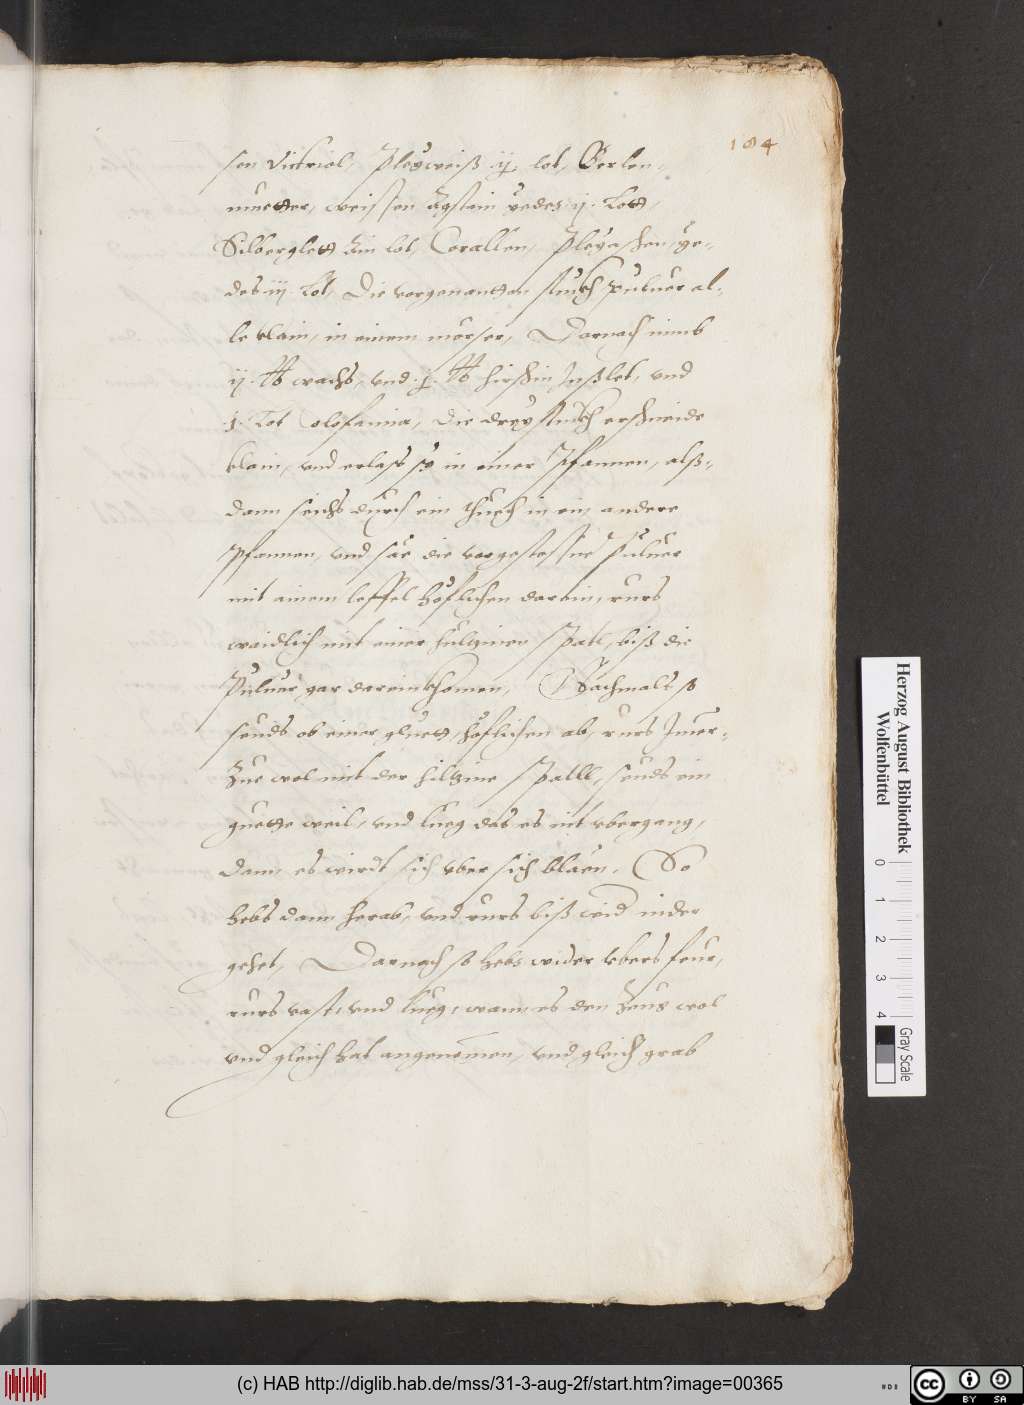 184
sen Victriol, Pleyweiß ij lot, Berlen,
muetter, weissen Agstain yedes ij. Lott,
Silberglett Ain lot, Corallen, Pleyaschen, ye-
des iij Lot, Die vorgenantten stuckh puluer al-
le klain, in einem morser, Darnach nimb
ij. ℔ wachs, vnd .j. ℔ hirschin Inßlet, vnd
.j. Lot Colofania, Die drey stuckh erschneide
klain, vnd erlaß sy in einer Pfannen, alß-
dann seichs durch ein thuech in ein andere
Pfannen, vnd säe die vorgestossne Puluer
mit ainem leffel höflichen darein, ruers
waidlich mit einer hulzinen Spatl, biß die
Puluer gar dareinkhomen, Nachmalt so
seuds ob einer gluett, höflichen ab, ruers Jmer-
zue wol mit der hilzine Spatll, seuds ein
guette weil, vnd lueg das es nit vbergang,
dann es wirdt sich vber sich bläen. So
hebs dann herab, vnd ruers biß wid nider
gehet, Darnach so hebs wider vbers feur,
ruers vast, vnd lueg, wann es den Zeug wol
vnd gleich hat angenomen, vnd gleich grab
Herzog August Bibliothek
Wolfenbüttel
0 1 2 3 4
Gray Scale
(c) HAB http://diglib.hab.de/mss/31-3-aug-2f/start.htm?image=00365
CC BY SA